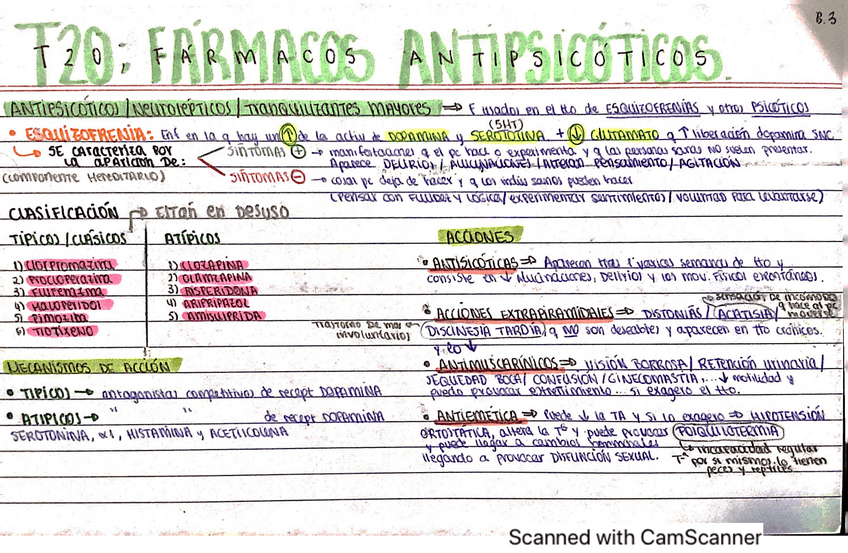 B.3
T20: FÁRMACOS ANTIPSICÓTICOS.
ANTIPSICÓTICOS/NEUROLÉPTICOS/TRANQUILIZANTES MAYORES ⇒ F usados en el tto de ESQUIZOFRENIAS y otros PSICÓTICOS
(5HT)
• ESQUIZOFRENIA: Enf en la q hay un ↑ de la activ de DOPAMINA y SEROTOTINA + ↓ GLUTAMATO q ↑ liberación dopamina SNC
↳ SE caracteriza por LA aparición De:
(componente HEREDITARIO)
SÍNTOMAS ⊕ → manifestaciones q el pc hace o experimenta y q las personas sanas NO suelen presentar.
Aparece DELIRIOS/ALUCINACIONES/ALTERAN PENSAMIENTO/AGITACIÓN
SÍNTOMAS ⊖ → cosas pc deja de hacer y q los indiv sanos pueden hacer
(Pensar con FLUIDEZ y LÓGICA/experimentar sentimientos/voluntad para levantarse)
CLASIFICACIÓN → Están en desuso
TÍPICOS/CLÁSICOS
1) Clorpromazina
2) Proclorperazina
3) Flufenazina
4) Haloperidol
5) Pimozida
6) Tiotixeno
ATÍPICOS
1) CLOZAPINA
2) OLANZAPINA
3) RISTERIDONA
4) ARIPIRIPAZOL
5) AMISULPRIDA
MECANISMOS DE ACCIÓN
• TÍPICOS → antagonistas competitivos de recept DOPAMINA
• ATÍPICOS → " " de recept DOPAMINA
SEROTONINA, α1, HISTAMINA y ACETILCOLINA
ACCIONES
• ANTISICÓTICAS ⇒ Aparecen tras 1 varias semanas de tto y
consiste en ↓ Alucinaciones, Delirios y los mov. físicos espontáneos.
↗ sensación de incomodez q hace al pc moverse
• ACCIONES EXTRAPIRAMIDALES ⇒ DISTONÍAS/ACATISIA/
Trastorno De mov involuntarios
DISCINESIA TARDÍA, q NO son deseables y aparecen en tto crónicos.
• ANTIMUSCARÍNICOS ⇒ VISIÓN BORROSA/RETENCIÓN urinaria/
SEQUEDAD BOCA/CONFUSIÓN/GINECOMASTIA,... ↓ motilidad y
puedo provocar estreñimiento... si exagero el tto.
• ANTIEMÉTICA ⇒ Puede ↓ la TA y si lo exagero ⇒ HIPOTENSIÓN
ORTOSTÁTICA, altera la Tª y puede provocar POIQUILOTERMIA
y puede llegar a cambios hormonales
llegando a provocar DISFUNCIÓN SEXUAL.
↳ incapacidad regular Tª por si mismos, lo tienen peces y reptiles
Scanned with CamScanner